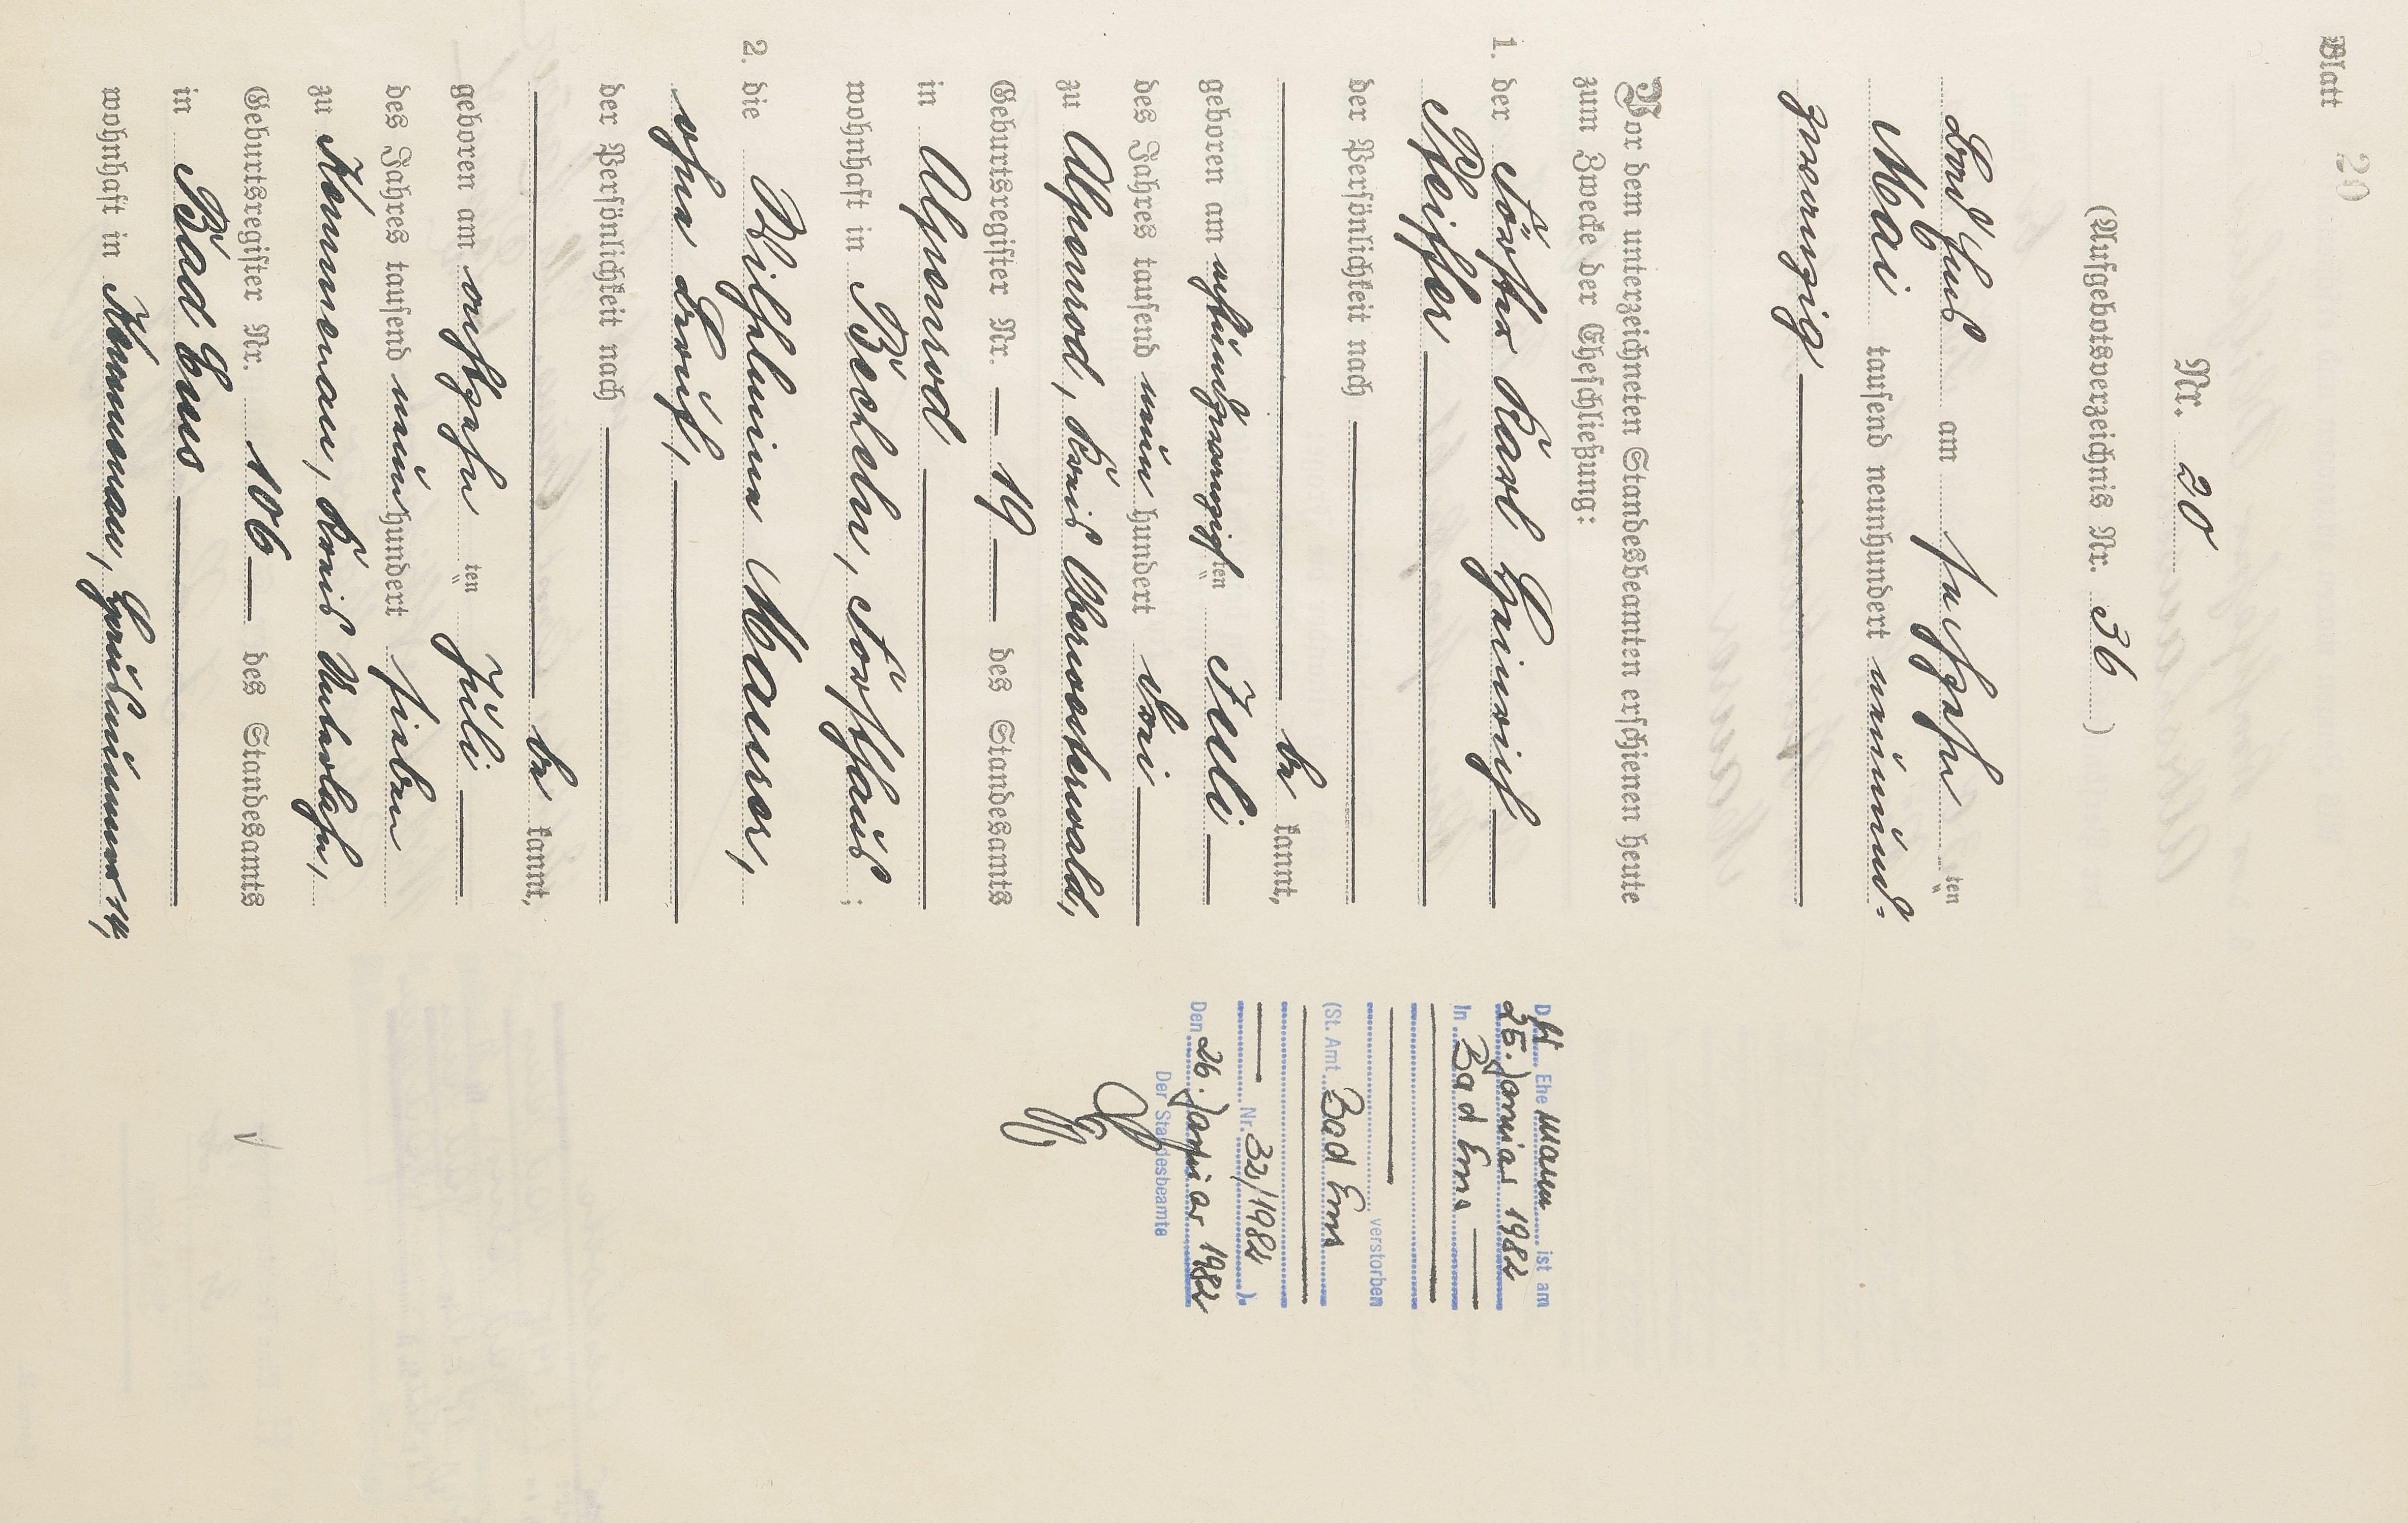 Blatt 20.
Nr. 20
(Aufgebotsverzeichnis Nr. 36)
Bad Ems am sechzehnten
Mai tausend neunhundert neunund-
zwanzig
Vor dem unterzeichneten Standesbeamten erschienen heute
zum Zwecke der Eheschließung:
1. der Förster Karl Heinrich
Pfeiffer
der Persönlichkeit nach
be kannt,
geboren am achtundzwanzigsten Juli
des Jahres tausend neun hundert drei
zu Alpenrod, Kreis Oberwesterwald,
Geburtsregister Nr. 19 des Standesamts
in Alpenrod
wohnhaft in Becheln, Forsthaus;
2. die Wilhelmine Maurer,
ohne Beruf,
der Persönlichkeit nach
be kannt,
geboren am achtzehnten Juli
des Jahres tausend neun hundert sieben
zu Kemmenau, Kreis Unterlahn,
Geburtsregister Nr. 106 des Standesamts
in Bad Ems
wohnhaft in Kemmenau, Hausnummer 14,
Der Ehemann ist am
25. Januar 1982
In Bad Ems
verstorben
(St. Amt Bad Ems
Nr. 32/1982).
Den 26. Januar 1982
Der Standesbeamte